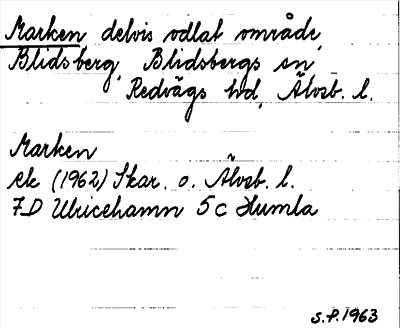 Marken delvis odlat område,
Blidsberg, Blidsbergs sn,
Redvägs hd, Älvsb. l.
Marken
ek (1962) Skar. o. Älvsb. l.
7D Ulricehamn 5c Humla
S.P. 1963